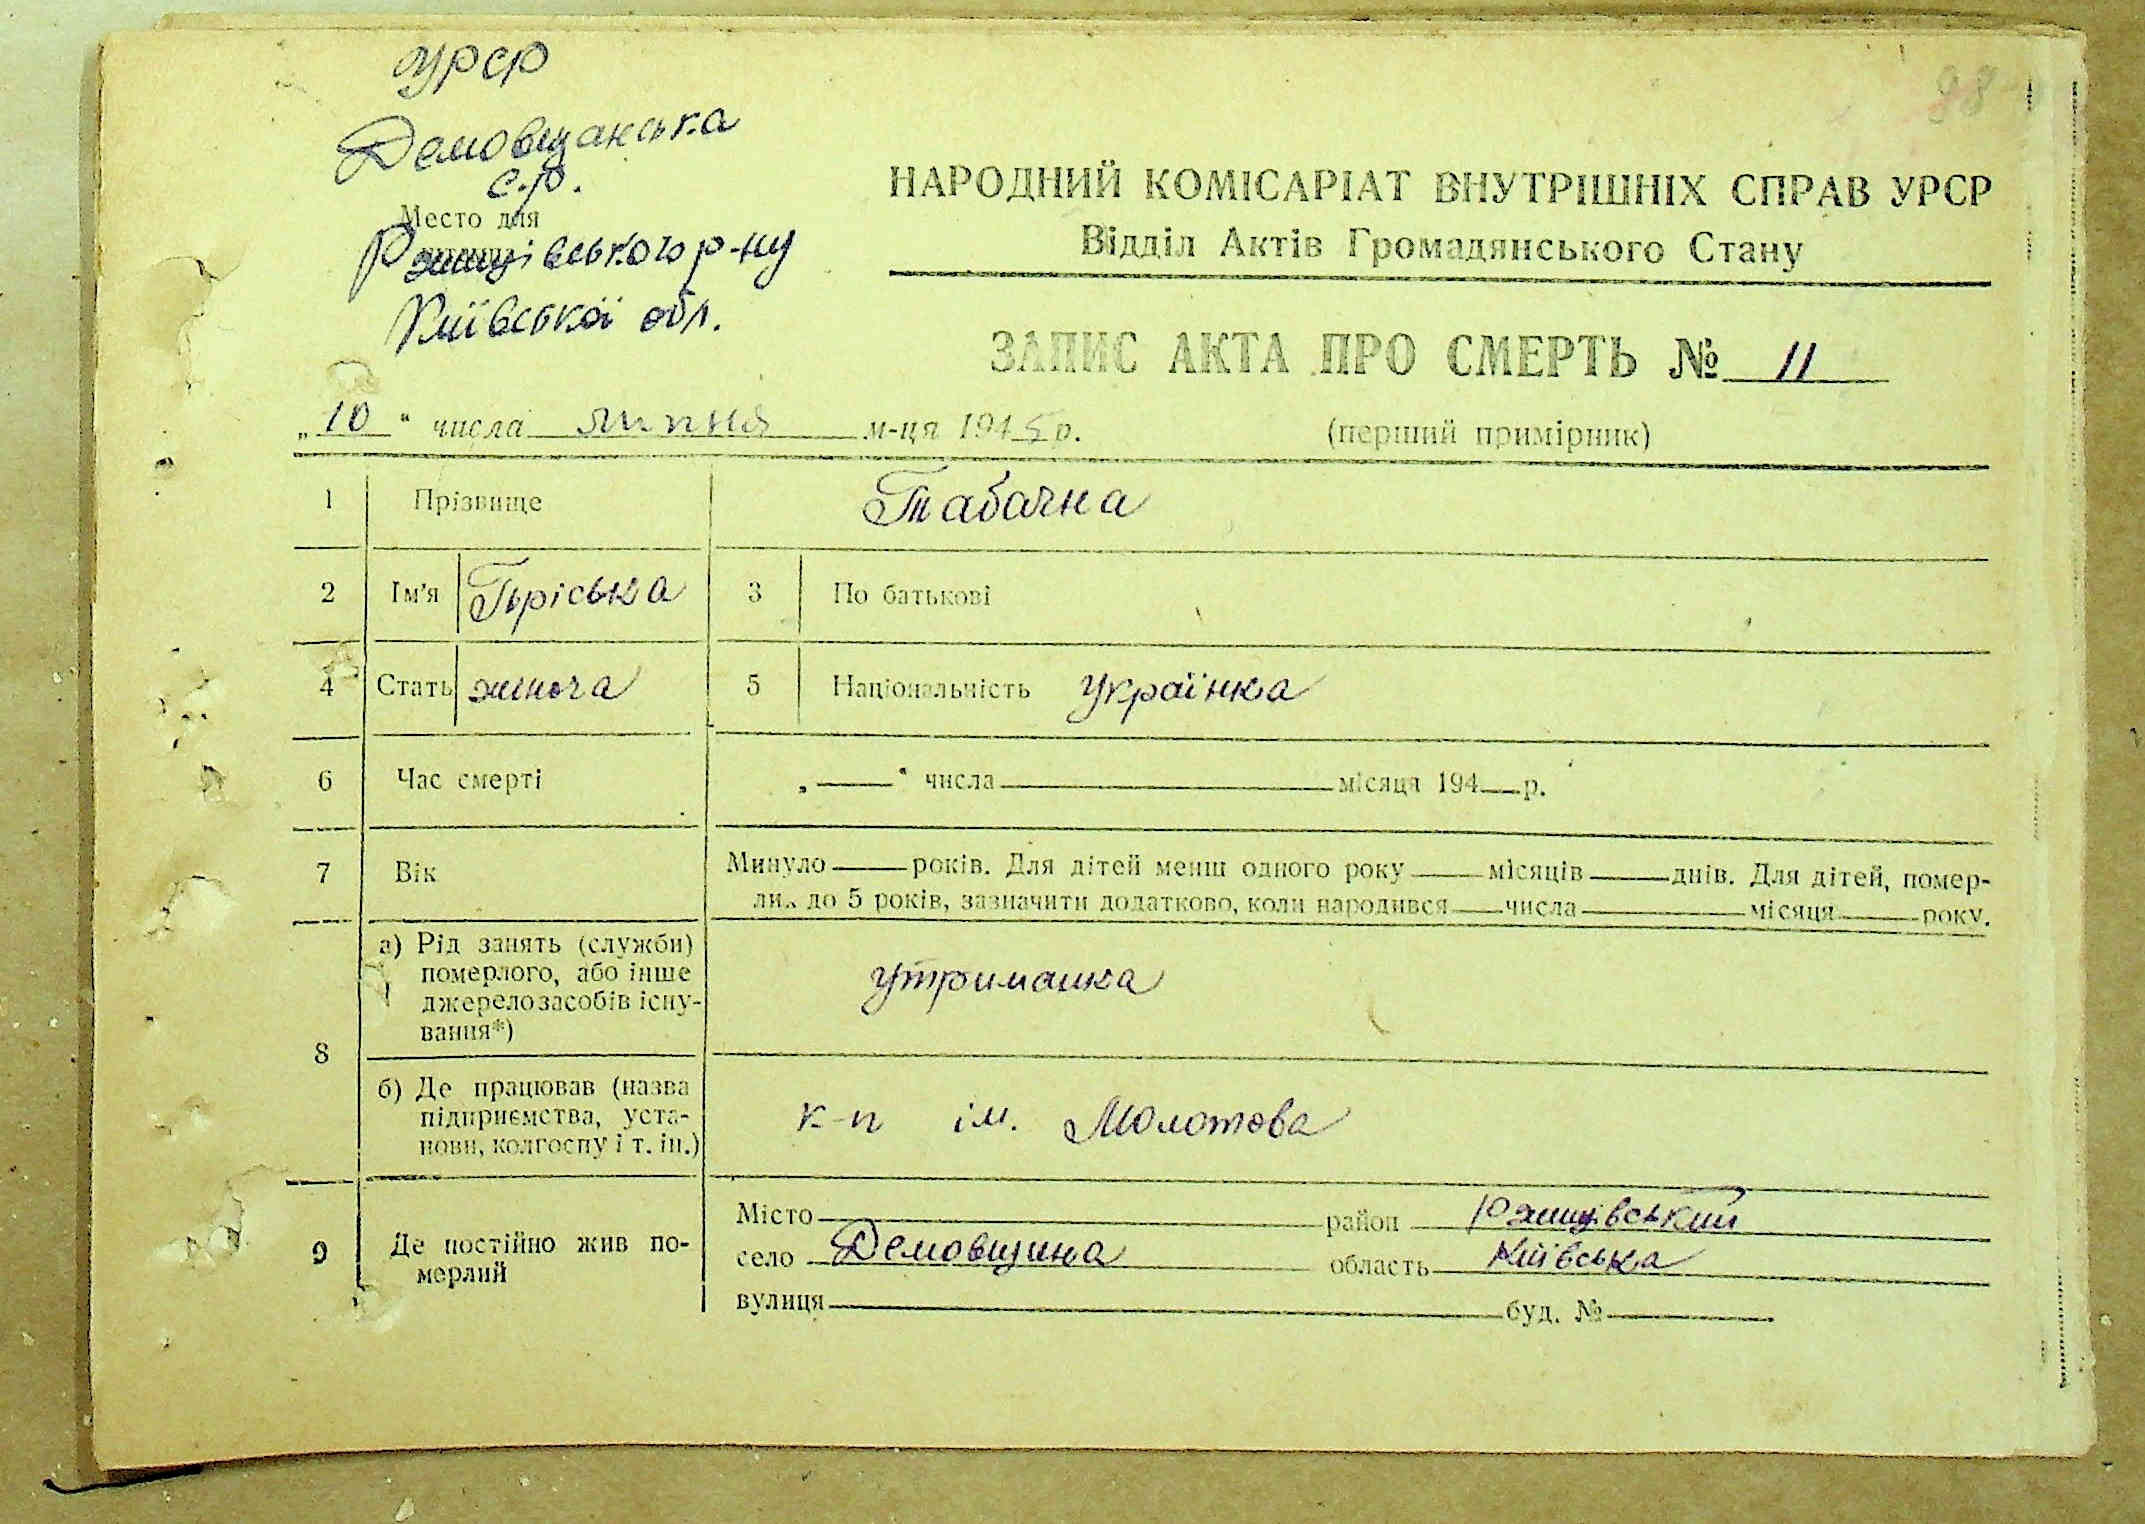 98
УРСР
Демовщанська
с.р.
Место для
Ржищівського р-ну
Київської обл.
НАРОДНИЙ КОМІСАРІАТ ВНУТРІШНІХ СПРАВ УРСР
Відділ Актів Громадянського Стану
ЗАПИС АКТА ПРО СМЕРТЬ № 11
„10" числа липня м-ця 1945 р.
(перший примірник)
1 Прізвище Табачна
2 Ім'я Пріська 3 По батькові
4 Стать жіноча 5 Національність Українка
6 Час смерті „ " числа місяця 194 р.
7 Вік Минуло років. Для дітей менш одного року місяців днів. Для дітей, помер-
лих до 5 років, зазначити додатково, коли народився числа місяця року.
8 а) Рід занять (служби)
померлого, або інше
джерело засобів існу-
вання*)
утриманка
б) Де працював (назва
підприємства, уста-
нови, колгоспу і т. ін.)
к-п ім. Молотова
9 Де постійно жив по-
мерлий
Місто район Ржищівський
село Демовщина область Київська
вулиця буд. №